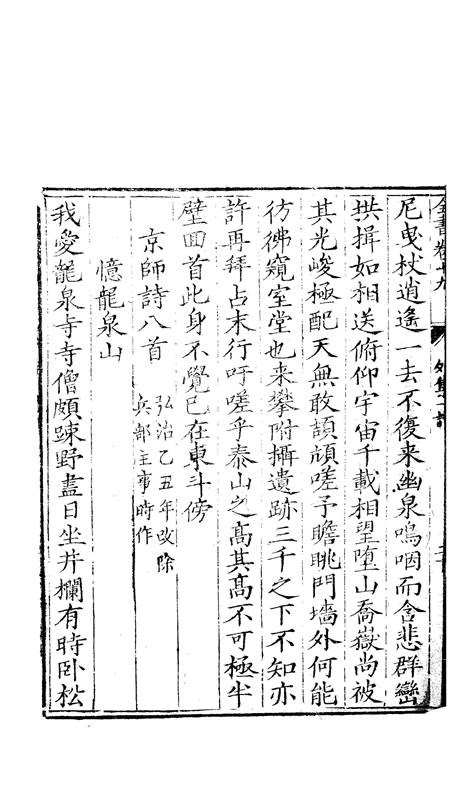 全書卷十九 外集一詩
尼曳杖逍遙一去不復来幽泉嗚咽而含悲群巒
拱揖如相送俯仰宇宙千載相望墮山喬嶽尚被
其光峻極配天無敢頡頏嗟予瞻眺門墻外何能
彷彿窺室堂也来攀附攝遺跡三千之下不知亦
許再拜占末行吁嗟乎泰山之髙其髙不可極半
壁回首此身不覺已在東斗傍
京師詩八首 弘治乙丑年改除
兵部主事時作
憶龍泉山
我愛龍泉寺寺僧頗踈野盡日坐井欄有時卧松